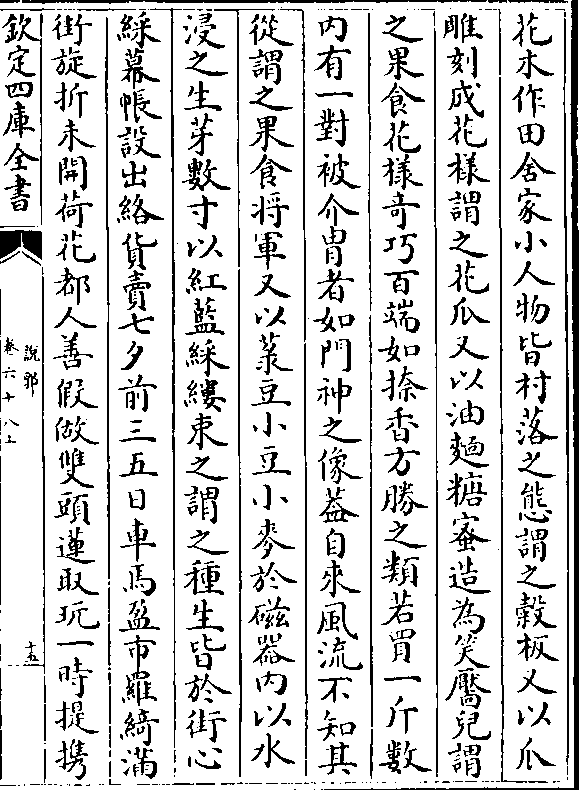 花木作田舍家小人物皆村落之態謂之榖板又以瓜
雕刻成花樣謂之花瓜又以油麵糖蜜造為笑靨兒謂
之果食花樣竒巧百端如捺香方勝之類若買一斤數
内有一對被介冑者如門神之像葢自來風流不知其
從謂之果食將軍又以菉豆小豆小麥於磁器内以水
浸之生芽數寸以紅藍綵縷束之謂之種生皆於街心
綵幕帳設出絡貨賣七夕前三五日車馬盈市羅綺滿
街旋折未開荷花都人善假做雙頭蓮取玩一時提携
欽定四庫全書
說郛
卷六十八上
十五